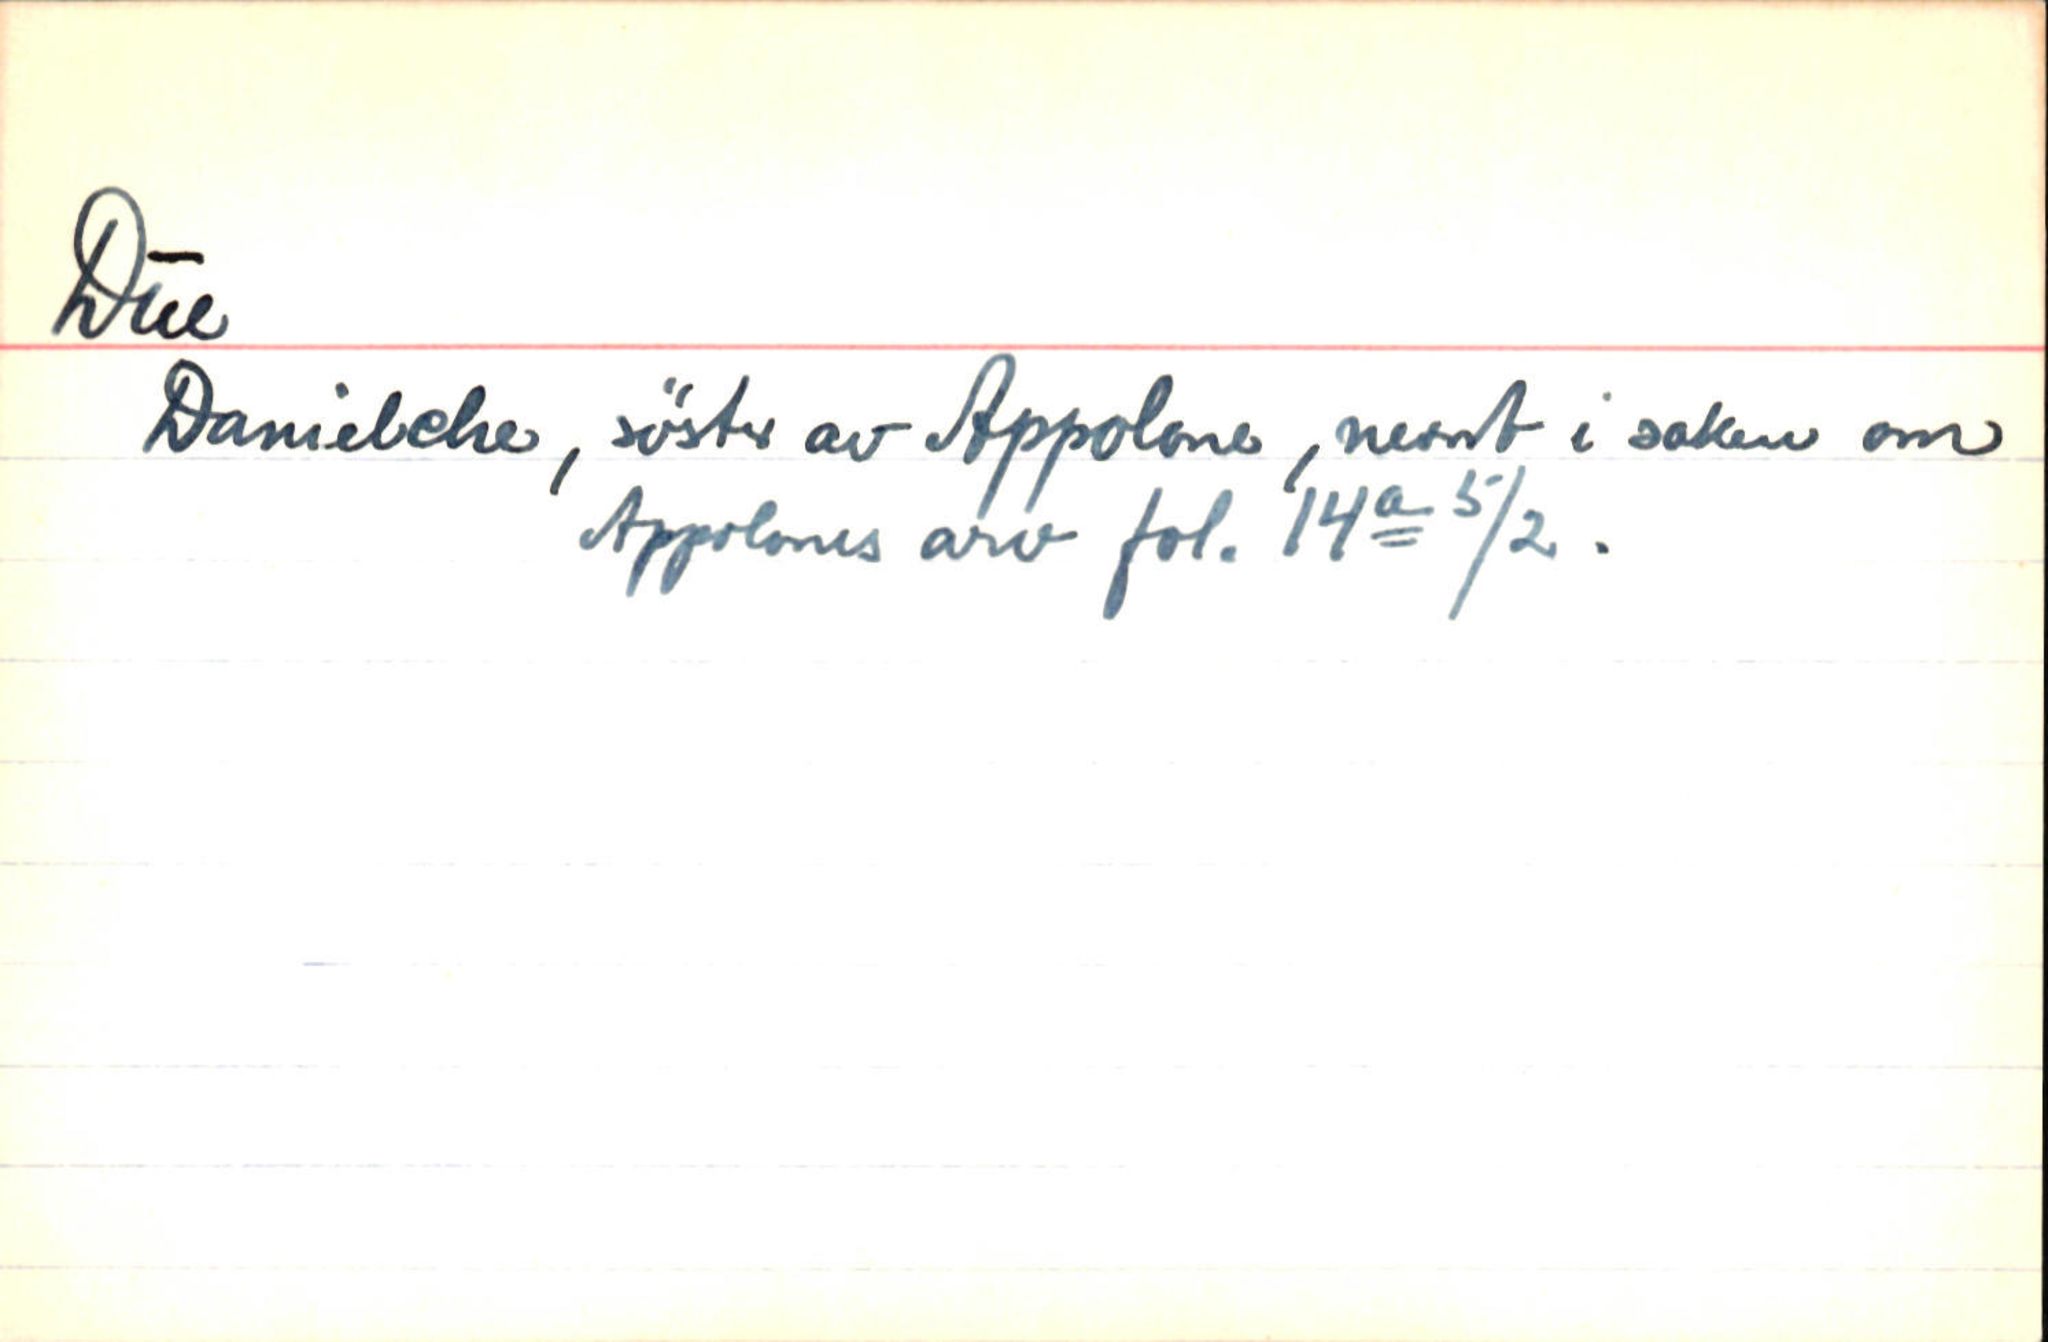 Due
Danielche, söster av Appolone, nevnt i saken om
Appolones arv fol. 14a 5/2.